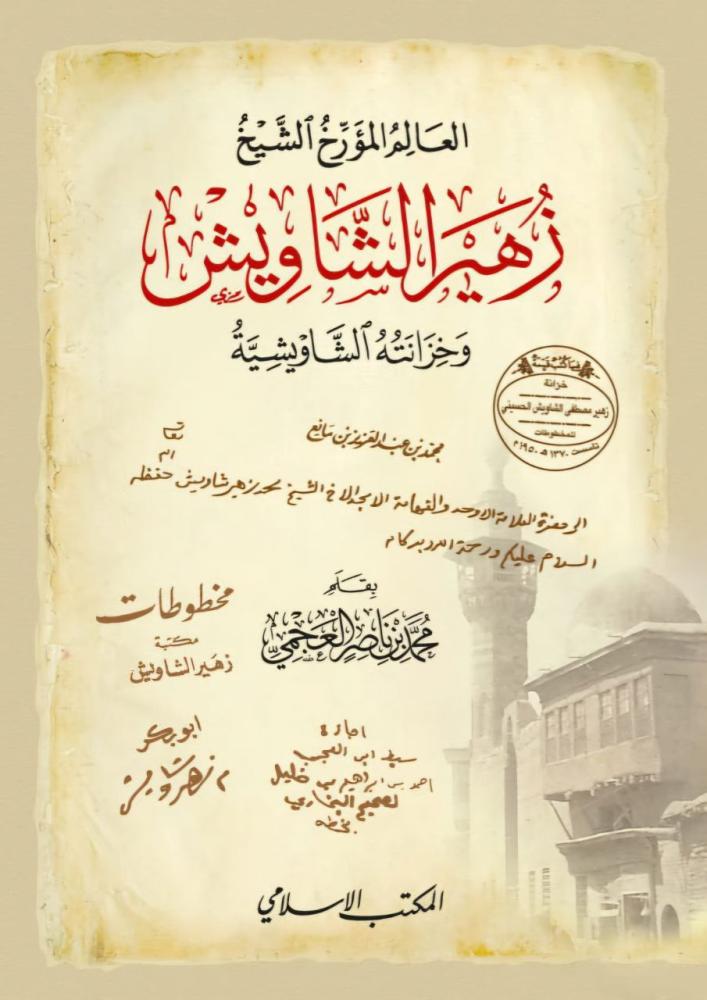 العَالِمُ المُؤَرِّخُ الشَّيْخُ
زُهَيْر الشَّاوِيْش
وَخِزَانَتُهُ الشَّاوِيْشِيَّةُ
خزانة
زهير مصطفى الشاويش الحسيني
للمخطوطات
تأسست ١٣٧٠ هـ ١٩٥٠ م
محمد بن عبد العزيز بن مانع
الى حضرة العلامة الاوحد والفهامة الامجد الاخ الشيخ محمد زهير شاويش حفظه
السلام عليكم ورحمة الله وبركاته
بِقَلَم
مُحَمَّد بْن نَاصِر العَجْمِي
مخطوطات
مكتبة
زهير الشاويش
ابو بكر
زهير شاويش
اجازة
سبط ابن العجمي
احمد بن ابراهيم بن خليل
لصحيح البخاري
بخطه
المكتب الاسلامي